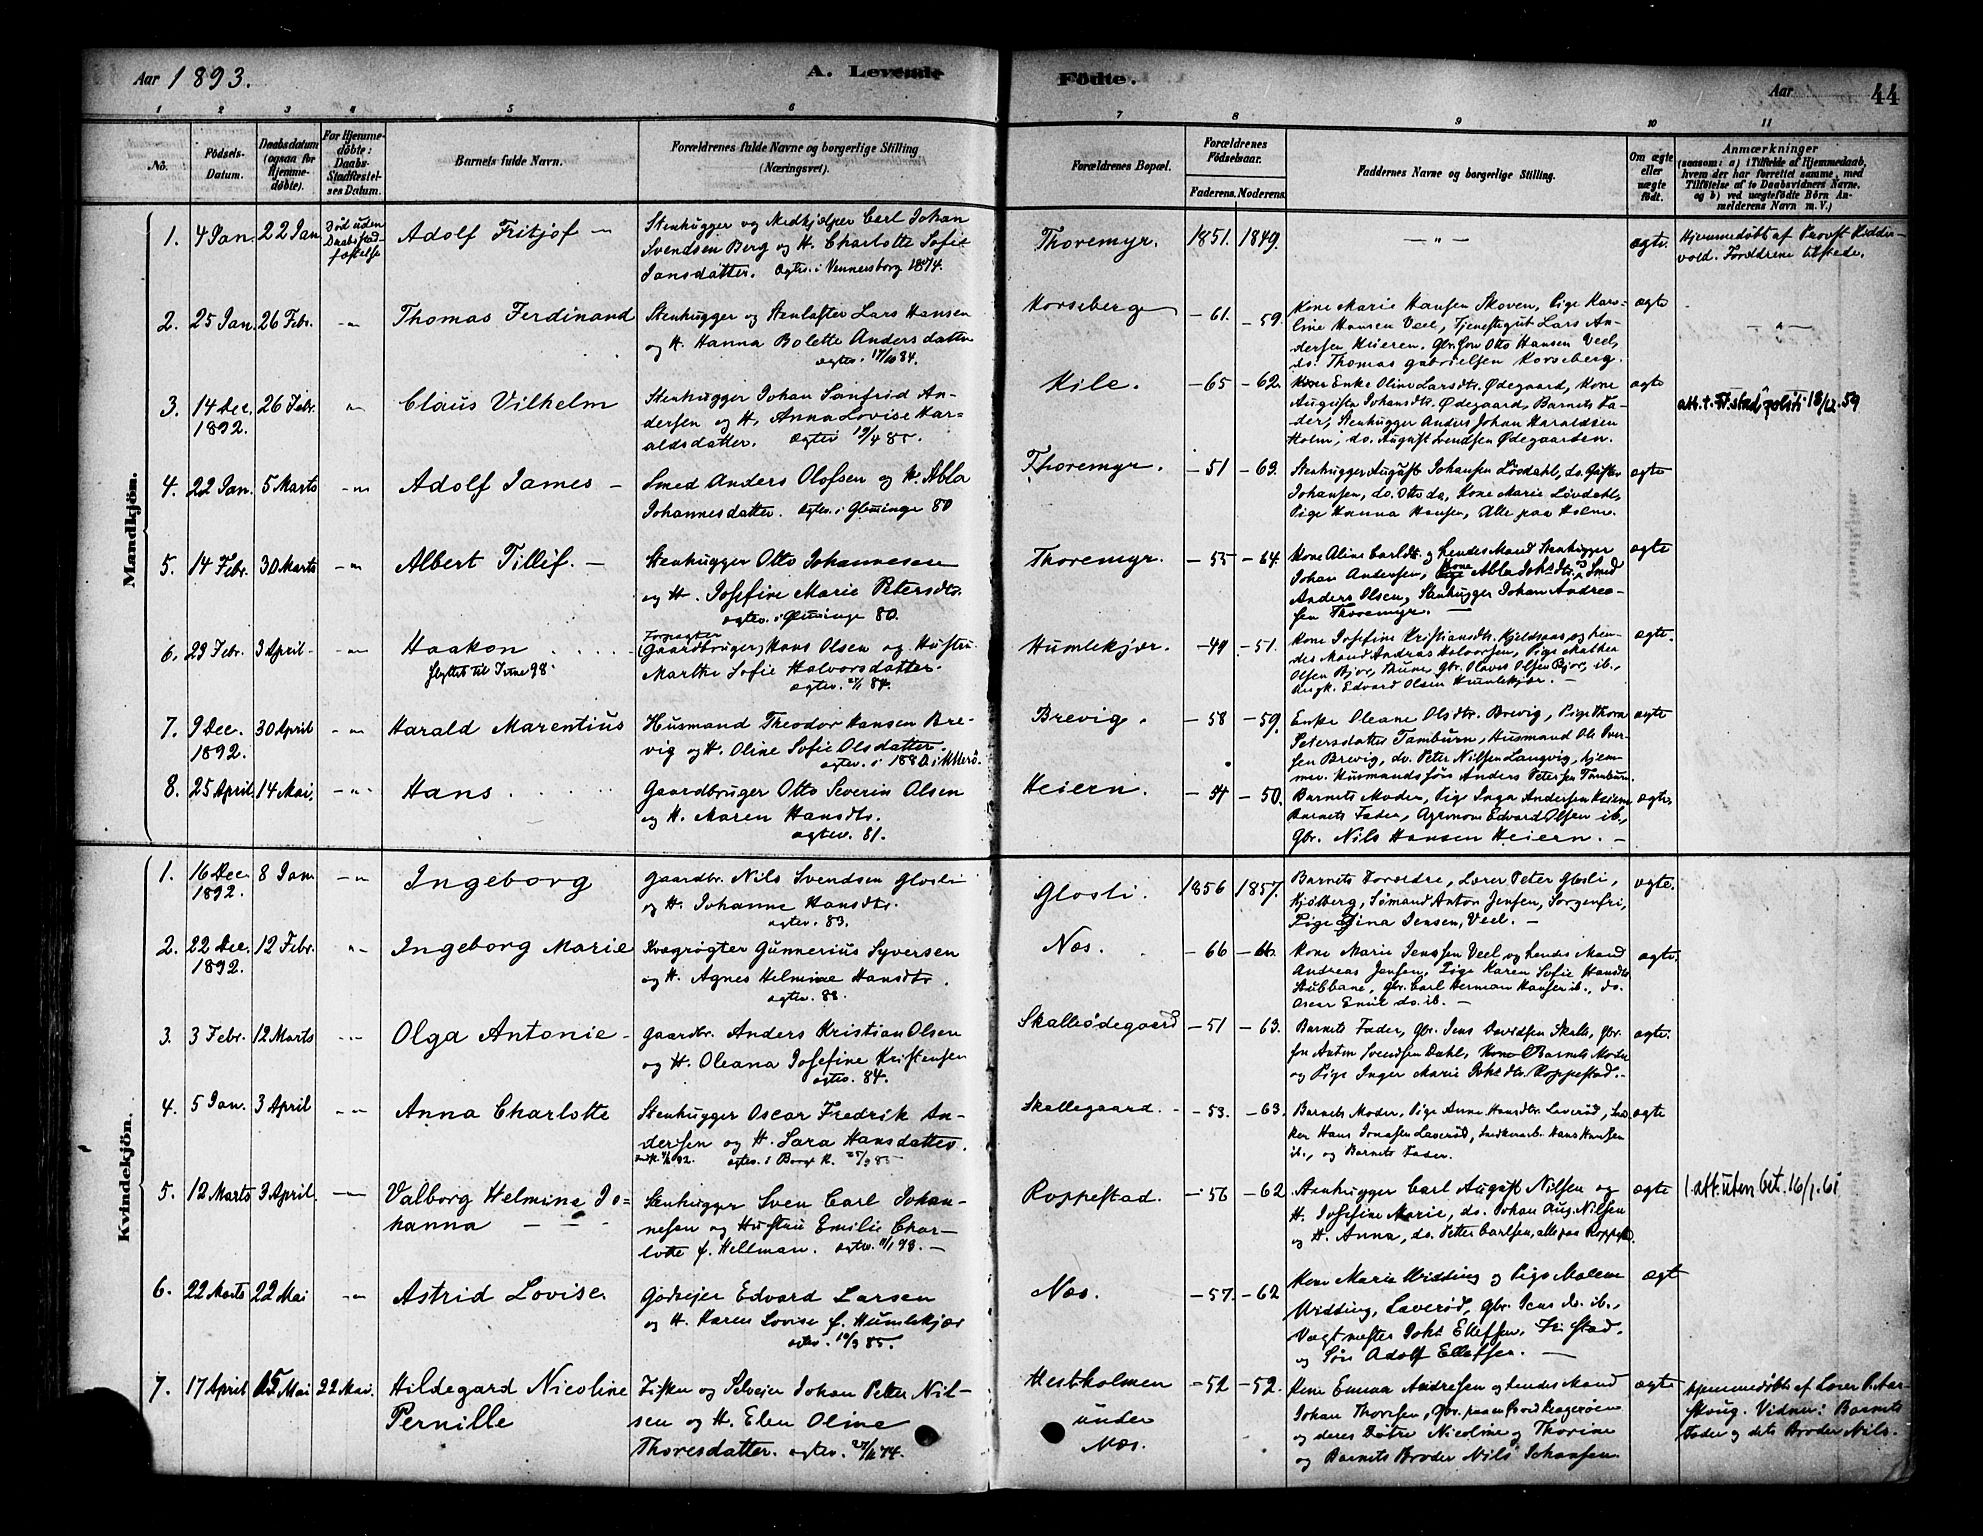 Aar 1893.
A. Levende
Födte.
Aar
44
1 2 3 4 5 6 7 8 9 10 11
No.
Födsels-
Datum.
Daabsdatum
(ogsaa for
Hjemme-
döbte).
For Hjemme-
döbte:
Daabs-
Stadfæstel-
ses Datum.
Barnets fulde Navn.
Forældrenes fulde Navne og borgerlige Stilling
(Næringsvei).
Forældrenes Bopæl.
Forældrenes
Födselsaar.
Faderens. Moderens.
Faddernes Navne og borgerlige Stilling.
Om ægte
eller
uægte
født.
Anmærkninger
(saasom: a) i Tilfælde af Hjemmedaab,
hvem der har forrettet samme, med
Tilföielse af to Daabsvidners Navne,
og b) ved uægtefödte Börn An-
melderens Navn m. V.)
Mandkjön.
1. 4 Jan 22 Jan Död uden
Daabsstad-
fæstelse
Adolf Fritjof —
Stenhugger og Medhjælper Carl Johan
Svendsen Berg og H. Charlotte Sofie
Jansdatter. ægtev. i Vennersborg 1874.
Thoremyr. 1851. 1849. — " — ægte.
Hjemmedøbt af Provst Ridder-
vold. Forældrene tilstede.
2. 25 Jan. 26 Febr. -"-
Thomas Ferdinand
Stenhugger og Lars Hansen
og H. Hanna Bolette Andersdatter
ægtev. 84.
Korseberg -61. -59.
Kone Marie Hansen Skoven, Pige Karo-
line Hansen Veel, Tjenestegut Lars An-
dersen Heieren. Gbr. Søn Otto Hansen Veel,
do. Thomas Gabrielsen Korseberg.
ægte
— " —
3. 14 Dec. 26 Febr. "
1892.
Claus Vilhelm
Stenhugger Johan Sanfrid An-
dersen og H. Anna Lovise Har-
aldsdatter. ægtev 19/4 85.
Kile. -65 -62.
Enke Oline Larsdtr. Ødegaard, Kone
Augusta Johansdtr. Ødegaard, Barnets Fa-
der, Stenhugger Anders Johan Haraldsen
Holm, do. August Svendsen Ødegaarden.
ægte
att. t. Fr.stad politi 18/12.59
4. 22 Jan. 5 Marts -"-
Adolf James —
Smed Anders Olofsen og H. Abla
Johannesdatter. ægtev. i Glemminge 80
Thoremyr. -51 -63.
Stenhugger August Johansen Løvdahl, do. Gustav
Johansen, do. Otto do., Kone Marie Løvdahl,
Pige Hanna Hansen, Alle paa Holm.
ægte
5. 14 Febr. 30 Marts -"-
Albert Tillef. —
Stenhugger Otto Johannesen
og H. Josefine Marie Petersdtr.
ægtev. i Glemminge 80.
Thoremyr. -55 -64.
Kone Aline Carldtr. og hendes Mand Stenhugger
Johan Andersen, Kone Abla Johsdtr. og Smed
Anders Olsen, Stenhugger Johan Andrea-
sen Thoremyr. —
ægte
6. 23 Febr. 3 April -"-
Haakon
flyttet til 98
Forpagter
(Gaardbruger) Hans Olsen og Hustru
Marthe Sofie Halvorsdatter.
ægtev. 84.
Humlekjær. -49 -51.
Kone Josefine Kristiansdtr. Kjeldsaas og hen-
des Mand Andreas Halvorsen, Pige Mathea
Olsen Bjor, Thune, Gbr. Olaves Olsen Bjor, ib.,
Ungk. Edvard Olsen Humlekjær. —
ægte.
7. 9 Dec. 30 April -"-
1892.
Harald Marentius
Husmand Theodor Hansen Bre-
vig og H. Oline Sofie Olsdatter.
ægtev. i 1880 i Utterö.
Brevig. -58 -59.
Enke Oleane Olsdtr. Brevig, Pige Thora
Petersdatter Tamburn, Husmand Ole Iver-
sen Brevig, do. Peter Nilsen Langvig, hjem-
mev. Husmandssøn Anders Petersen Tamburn.
ægte
8. 25 April 14 Mai. -"-
Hans
Gaardbruger Otto Severin Olsen
og H. Maren Hansdtr.
ægtev. 81.
Heiern. -54 -50.
Barnets Moder, Pige Inga Andersen Heiern
Barnets Fader, Agronom Edvard Olsen ib.,
Gbr. Nils Hansen Heiern. —
ægte.
Kvindekjön.
1. 16 Dec. 8 Jan -"-
1892.
Ingeborg
Gaardbr. Nils Svendsen Glosli
og H. Johanne Hansdtr.
ægtev. 83.
Glosli. 1856 1857.
Barnets Forældre, Lærer Peter Glosli,
Kjölberg, Sømand Anton Jensen, Sorgenfri,
Pige Gina Jensen, Veel. —
ægte.
2. 22 Dec. 12 Febr. "-
1892.
Ingeborg Marie
Kvægrøgter Gunnerius Syversen
og H. Agnes Helmine Hansdtr.
ægtev. 88.
Næs. -66 -66.
Kone Marie Jenssen Veel og hendes Mand
Andreas Jensen, Pige Karen Sofie Hansdtr.
Stubbane, Gbr. Carl Herman Hansen ib., do.
Oscar Emil do. ib. —
ægte.
3. 3 Febr. 12 Marts -"-
Olga Antonie -
Gaardbr. Anders Kristian Olsen
og H. Oleana Josefine Kristensen
ægtev. 84.
Skalleødegaard -51 -63.
Barnets Fader, Gbr. Jens Davidsen Skalle, Gbr.
søn Anton Svendsen Dahl, Kone Barnets Moder
og Pige Inger Marie Johsdtr. Roppestad.
ægte.
4. 5 Jan. 3 April -"-
Anna Charlotte
Stenhugger Oscar Fredrik An-
dersen og H. Sara Hansdatter.
ægtev. i Borge K. 25/9 85
Skallegaard. -53. -63.
Barnets Moder, Pige Anne Hansdtr Laverød, Sned-
ker Hans Jonasen Laverød, Snedkerarb. Hans Hansen
ib., og Barnets Fader.
ægte
5. 12 Marts 3 April. -"-
Valborg Helmine Jo-
hanna — —
Stenhugger Sven Carl Johan-
nesen og Hustru Emilie Char-
lotte f. Hellman. ægtev. —
Roppestad. -56 -62
Stenhugger Carl August Nilsen og
H. Josefine Marie, do. Johan Aug. Nilsen
og H. Anna, do. Petter Carlsen, alle paa Roppestd.
ægte
1 att. uten bet. 16/1.61
6. 22 Marts 22 Mai -"-
Astrid Lovise
Godseier Edvard Larsen
og H. Karen Lovise f. Humlekjær
ægtev. 10/3 85.
Næs. -57. -62
Kone Marie Widding og Pige Malene
Widding, Laverød, Gbr. Jens do. ib.,
Vægtmester Johs Ellefsen, Fr.stad,
og Søn Adolf Ellefsen. —
ægt
7. 17 April 15 Mai 22 Mai.
Hildegard Nicoline
Pernille
Fisker og Selveier Johan Peter Nil-
sen og H. Elen Oline
Thoresdatter. ægtev. 74.
Hestholmen
under
Næs.
-52 -52.
Kone Emma Andresen og hendes Mand
Johan Thoresen, Gbr. paa Nord Kragerøen
og deres Døtre Nicoline og Thorine
og Barnets Broder Nils Johansen.
ægte
Hjemmedøbt af Lærer P. Aar-
stoug. Vidner: Barnets
Fader og dets Broder Nils.